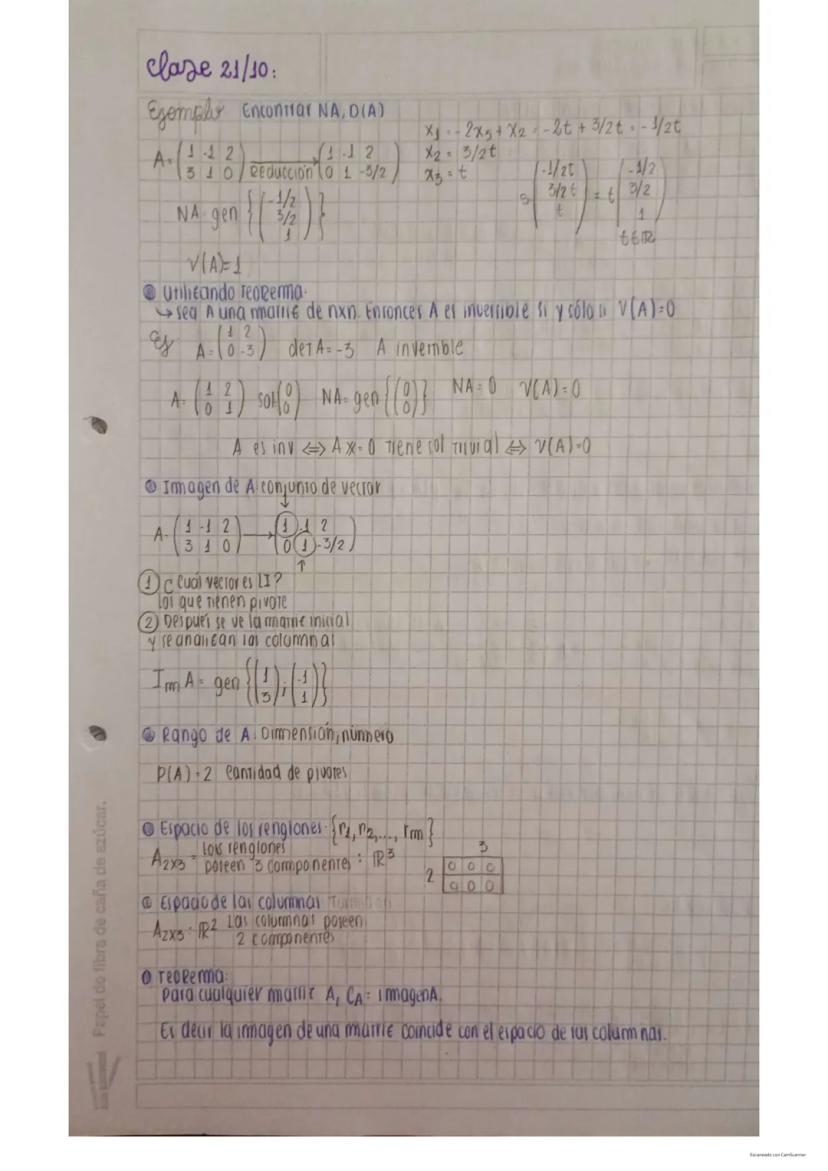 Clase 21/10:
Ejemplo Encontrar NA, D(A)
A=(1 -1 2 / 3 1 0) Reducción (1 -1 2 / 0 1 -3/2)
NA=gen {(-1/2 / 3/2 / 1)}
V(A)=1
x1=-2x3+x2=-2t+3/2t=-1/2t
x2=3/2t
x3=t
S(-1/2t / 3/2t / t)=t(-1/2 / 3/2 / 1)
t∈R
Utilizando Teorema.
↳ sea A una matriz de nxn. Entonces A es inversible si y sólo si V(A)=0
Ej A=(1 2 / 0 -3) det A=-3 A invertible
A=(1 2 / 0 1) sol(0 / 0) NA=gen{(0 / 0)} NA=0 V(A)=0
A es inv ⇔ Ax=0 Tiene sol trivial ⇔ V(A)=0
Imagen de A: conjunto de vector
A=(1 -1 2 / 3 1 0) → (1 -1 2 / 0 1 -3/2)
① ¿Cuál vector es LI?
los que tienen pivote
② Después se ve la matriz inicial
y se analizan las columnas
Im A= gen {(1 / 3);(-1 / 1)}
Rango de A: Dimensión, número
P(A)=2 Cantidad de pivotes
Espacio de los renglones: {r1, r2, ..., rm}
A2x3= Los renglones
poseen 3 componentes: R³
3
2
0 0 0
0 0 0
Espacio de las columnas
A2x3: R² Las columnas poseen
2 componentes
Teorema:
Para cualquier matriz A, CA= imagenA.
Es decir la imagen de una matriz coincide con el espacio de sus columnas.
Papel de fibra de caña de azúcar.
Escaneado con CamScanner